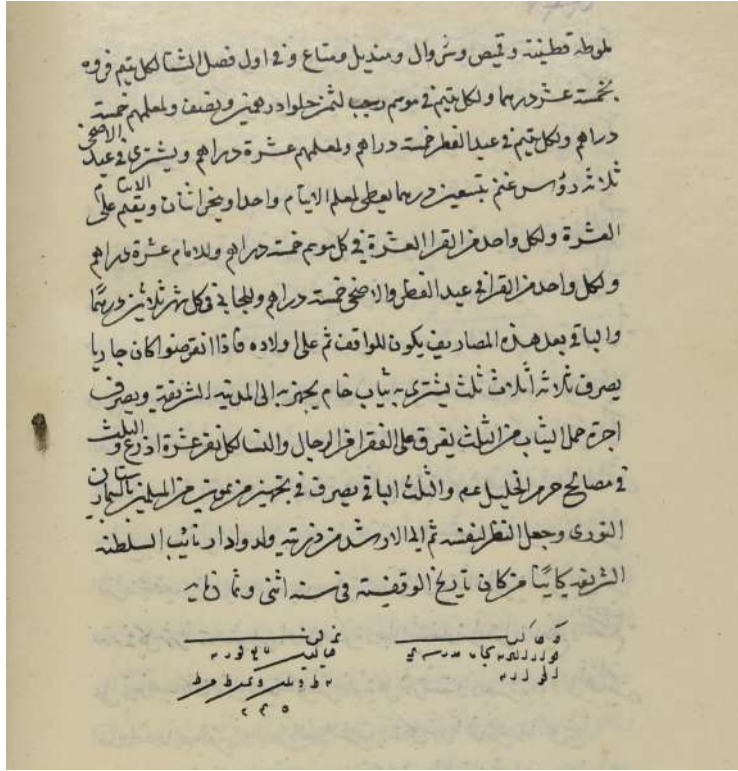 ملوطه قطنية وقميص وسروال ومنديل ومتاع وفي اول فصل الشتا لكل يتيم فروه
بخمسة عشر درهما ولكل يتيم في موسم رجب لثمن حلوا درهمين ونصف ولمعلمهم خمسة
دراهم ولكل يتيم في عيد الفطر خمسة دراهم ولمعلمهم عشرة دراهم ويشترى في عيد الاضحى
ثلاثه رؤس غنم بتسعين درهما يعطى لمعلم الايتام واحدا وينحر اثنان ويقسم على الايتام
العشرة ولكل واحد من القرا العشرة في كل موسم خمسة دراهم وللامام عشرة دراهم
ولكل واحد من القرا في عيد الفطر والاضحى خمسة دراهم وللجابي في كل شهر ثلاثين درهما
والباقي بعد هذه المصاريف يكون للواقف ثم على اولاده فاذا انقرضوا كان جاريا
يصرف ثلاثه اثلاث ثلث يشترى به ثياب خام يجهز به الى المدينه الشريفة ويصرف
اجرة حمل الثياب من الثلث يفرق على الفقرا من الرجال والنسا لكل نفر عشرة اذرع والثلث
في مصالح حرم الخليل عم والثلث الباقي يصرف في تجهيز من يموت من المسلمين بالبيمارستان
النوري وجعل النظر لنفسه ثم الى الارشد من ذريته ولدوادار نايب السلطنه
الشريفه كاينا من كان تاريخ الوقفية في سنه اثنى وثمانمايه